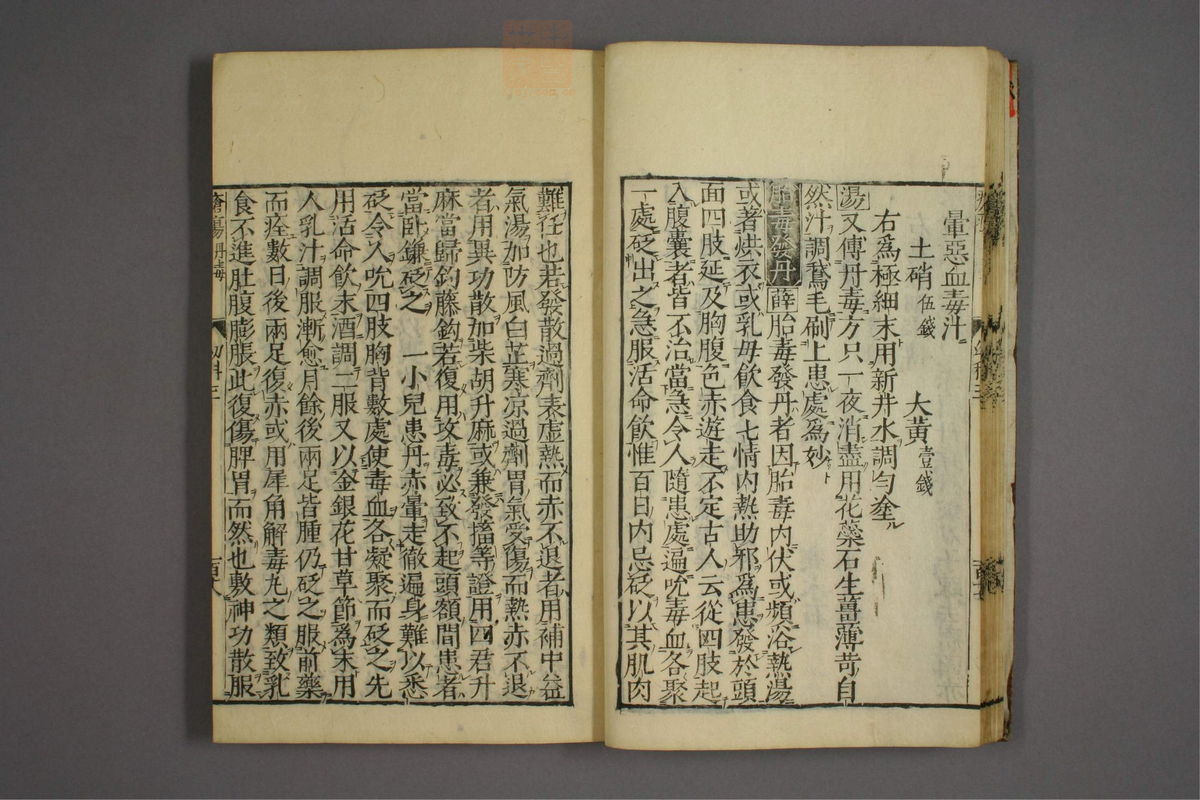 暈惡血毒汁
土硝伍錢 大黃壹錢
右爲極細末用新井水調勻塗
湯又傅丹毒方只一夜消盡用花蘂石生薑薄苛自
然汁調鵞毛刷上患處爲妙
胎毒發丹 薛胎毒發丹者因胎毒内伏或頻浴熱湯
或著烘衣或乳母飲食七情内熱助邪爲患發於頭
面四肢延及胸腹色赤遊走不定古人云從四肢起
入腹囊者皆不治當急令人隨患處遍吮毒血各聚
一處砭出之急服活命飲惟百日内忌砭以其肌肉
難任也若發散過劑表虛熱而赤不退者用補中益
氣湯加防風白芷寒凉過劑胃氣受傷而熱赤不退
者用異功散加柴胡升麻或兼發搐等證用四君升
麻當歸鈎藤鈎若復用攻毒必致不起頭額間患者
當臥鎌砭之 一小兒患丹赤暈走徹遍身難以悉
砭令人吮四肢胸背數處使毒血各凝聚而砭之先
用活命飲末酒調二服又以金銀花甘草節爲末用
人乳汁調服漸愈月餘後兩足皆腫仍砭之服前藥
而痊數日後兩足復赤或用犀角解毒丸之類致乳
食不進肚腹膨脹此復傷脾胃而然也敷神功散服
瘡瘍丹毒 幼科三